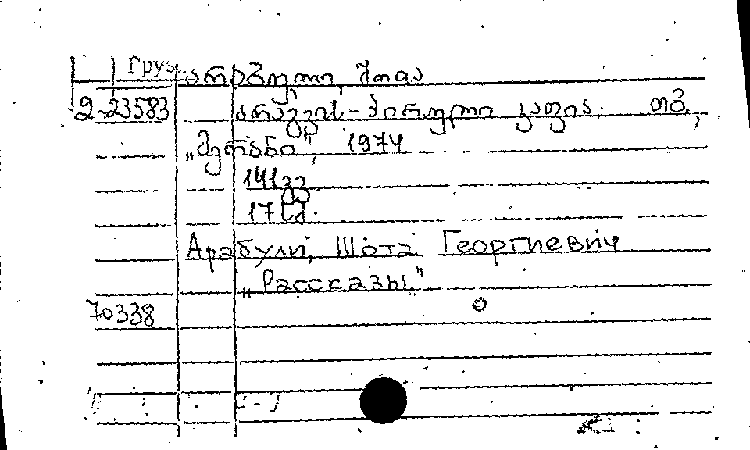 Груз. არაბული, შოთა
2-23583 არაგვის-პირელი კაფია. თბ.,
„მერანი", 1974
141გვ
17 კ.
Арабули, Шота Георгиевич
„Рассказы."
70338